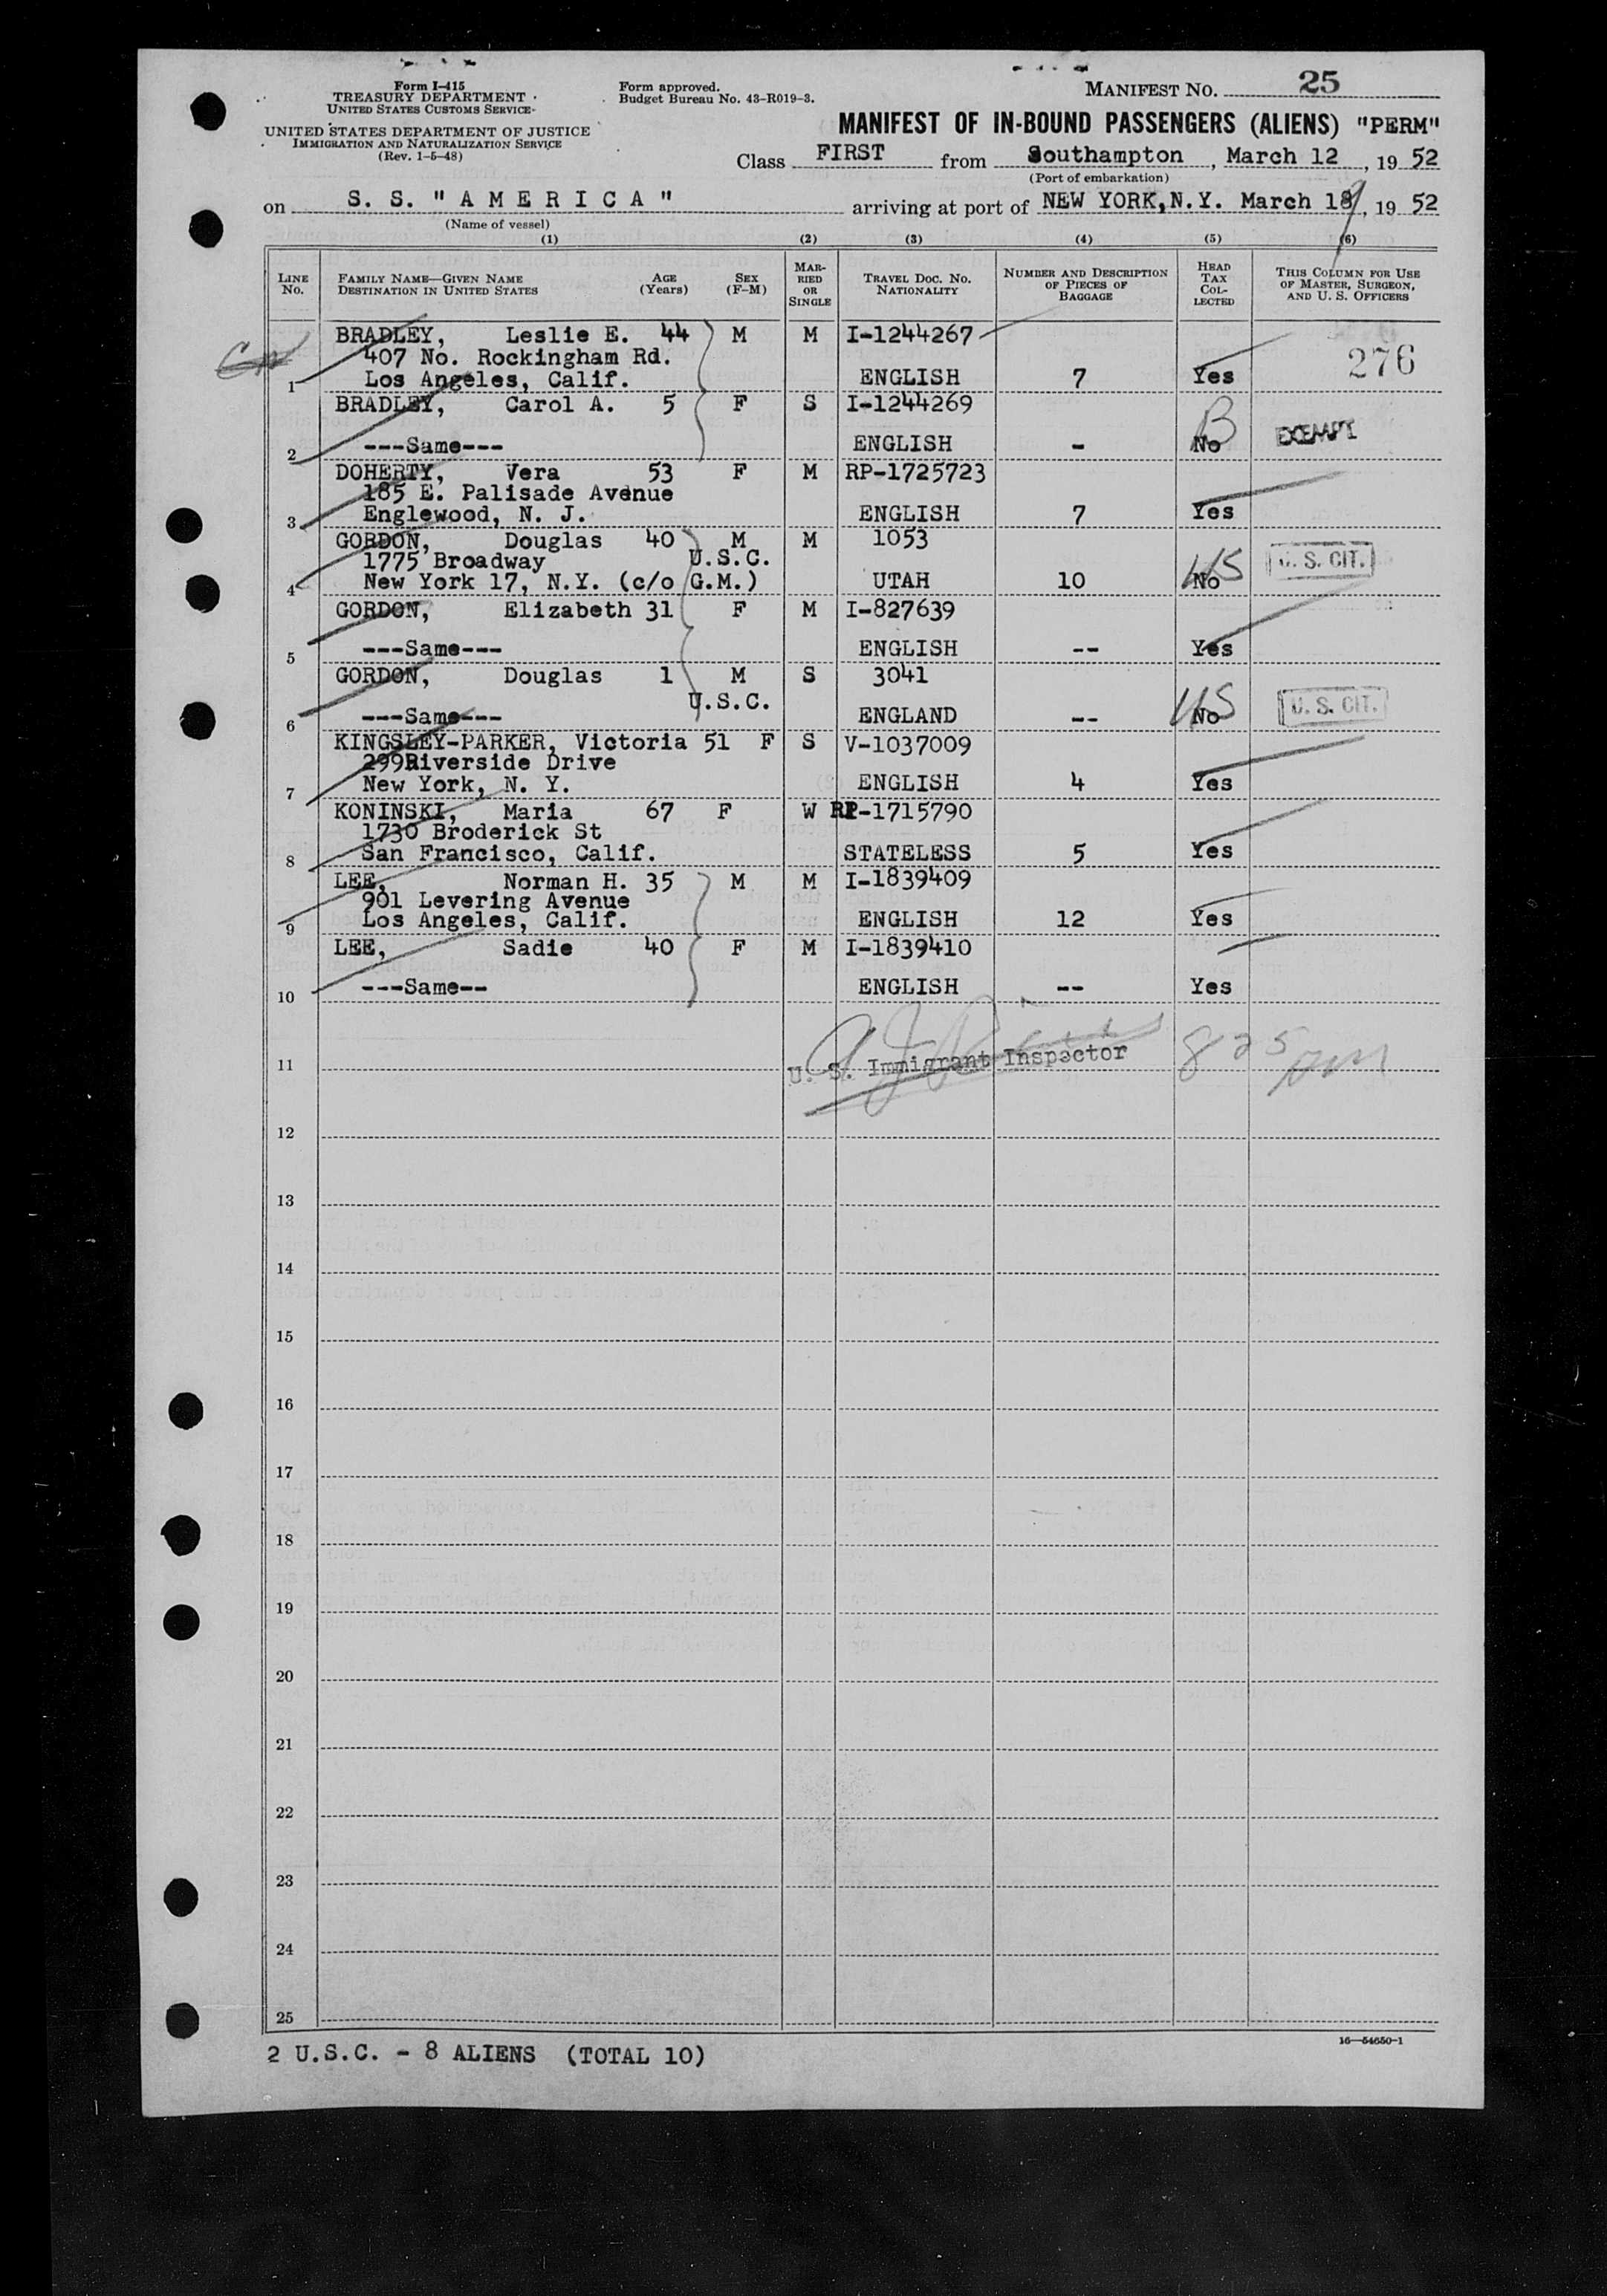 Form I-415
TREASURY DEPARTMENT
UNITED STATES CUSTOMS SERVICE
UNITED STATES DEPARTMENT OF JUSTICE
IMMIGRATION AND NATURALIZATION SERVICE
(Rev. 1-5-48)
Form approved.
Budget Bureau No. 43-R019-3.
MANIFEST NO. 25
MANIFEST OF IN-BOUND PASSENGERS (ALIENS) "PERM"
Class FIRST from Southampton, March 12, 19 52
(Port of embarkation)
on S. S. "AMERICA" arriving at port of NEW YORK, N.Y. March 19, 19 52
(Name of vessel)
(1) (2) (3) (4) (5) (6)
LINE No. FAMILY NAME—GIVEN NAME DESTINATION IN UNITED STATES AGE (Years) SEX (F-M) MARRIED OR SINGLE TRAVEL DOC. NO. NATIONALITY NUMBER AND DESCRIPTION OF PIECES OF BAGGAGE HEAD TAX COLLECTED THIS COLUMN FOR USE OF MASTER, SURGEON, AND U. S. OFFICERS
BRADLEY, Leslie E. 44 M M I-1244267
407 No. Rockingham Rd. 276
1 Los Angeles, Calif. ENGLISH 7 Yes
BRADLEY, Carol A. 5 F S I-1244269 B
2 ---Same--- ENGLISH - No EXEMPT
DOHERTY, Vera 53 F M RP-1725723
185 E. Palisade Avenue
3 Englewood, N. J. ENGLISH 7 Yes
GORDON, Douglas 40 M M 1053
1775 Broadway U.S.C. US U. S. CIT.
4 New York 17, N.Y. (c/o G.M.) UTAH 10 No
GORDON, Elizabeth 31 F M I-827639
5 ---Same--- ENGLISH -- Yes
GORDON, Douglas 1 M S 3041
U.S.C. US U. S. CIT.
6 ---Same--- ENGLAND -- No
KINGSLEY-PARKER, Victoria 51 F S V-1037009
299Riverside Drive
7 New York, N. Y. ENGLISH 4 Yes
KONINSKI, Maria 67 F W RP-1715790
1730 Broderick St
8 San Francisco, Calif. STATELESS 5 Yes
LEE, Norman H. 35 M M I-1839409
901 Levering Avenue
9 Los Angeles, Calif. ENGLISH 12 Yes
LEE, Sadie 40 F M I-1839410
10 ---Same-- ENGLISH -- Yes
11 U. S. Immigrant Inspector 825 pm
12
13
14
15
16
17
18
19
20
21
22
23
24
25
16—54650-1
2 U.S.C. - 8 ALIENS (TOTAL 10)